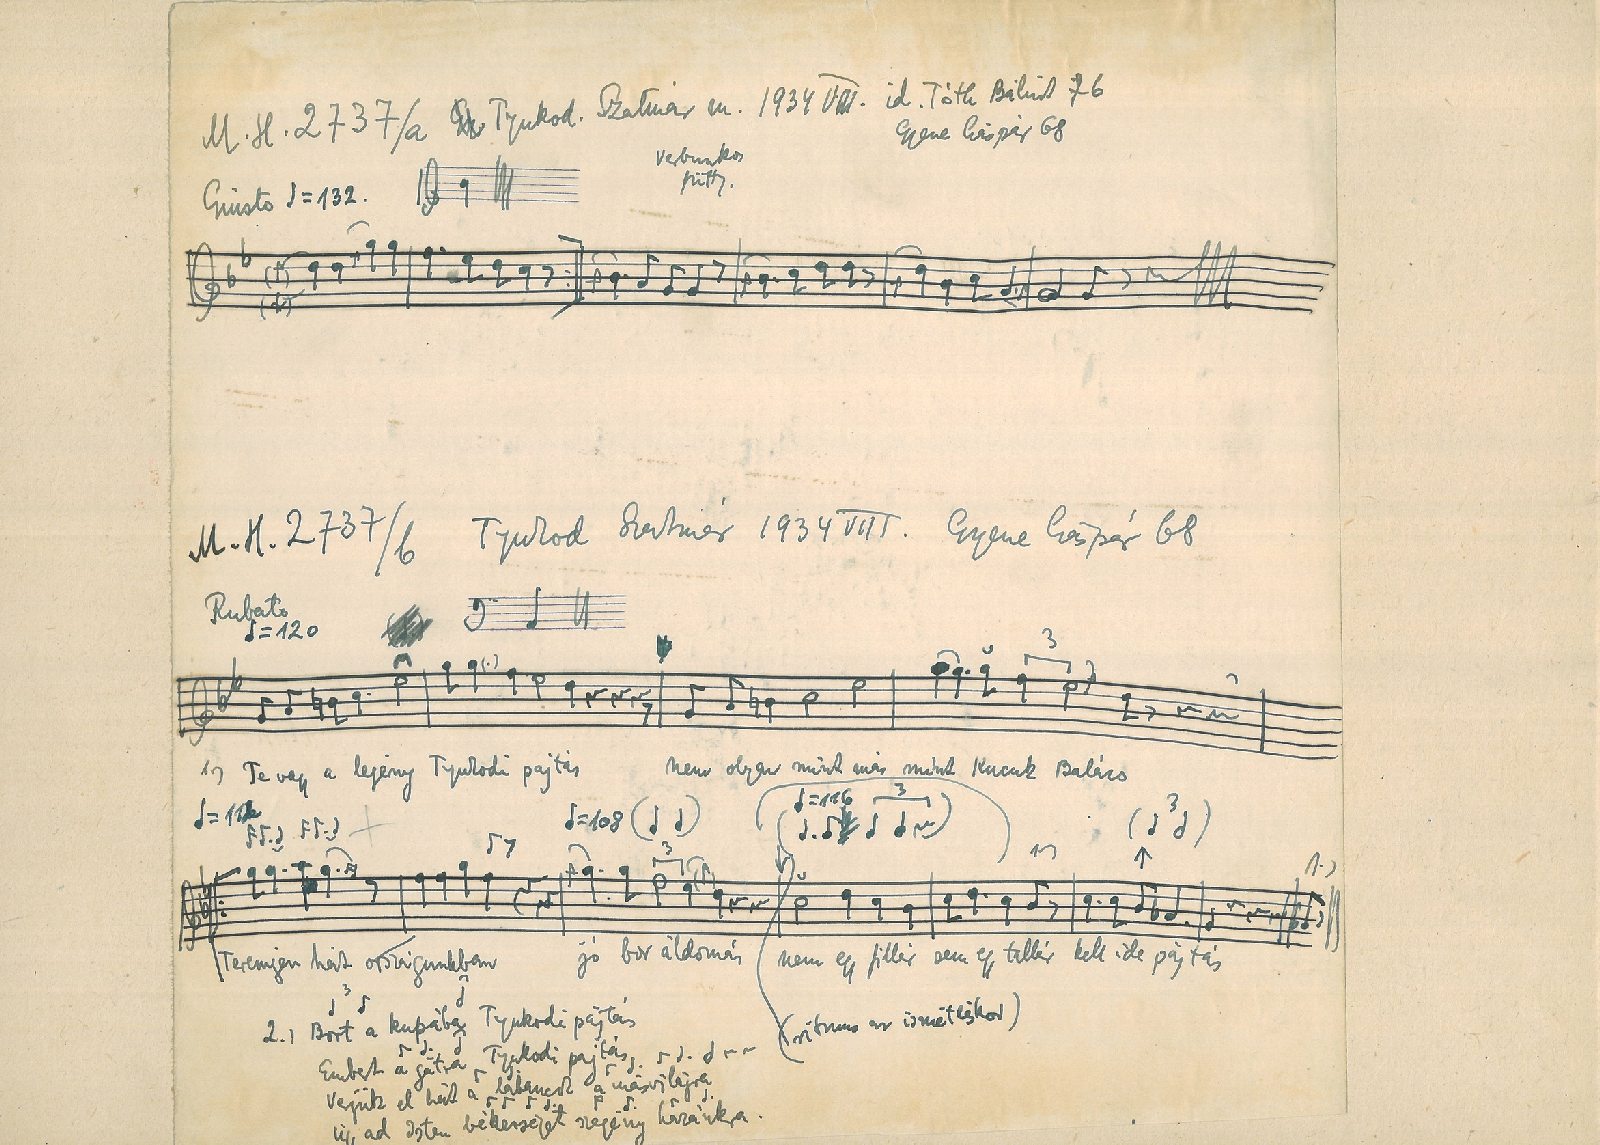 M.H. 2737/a Tyukod. Szatmár m. 1934 VIII. id. Tóth Bálint 76
Gyene Gáspár 68
verbunkos
fütty.
Giusto ♩=132.
M.H. 2737/b Tyukod Szatmár 1934 VIII. Gyene Gáspár 68
Rubato
♩=120
3
1.) Te vagy a legény Tyukodi pajtás nem olyan mint más mint Kucuk Balázs
♩=108 ♩=116 3
3
1.)
3
Teremjen hát országunkban jó bor áldomás nem egy fillér sem egy tallér kell ide pajtás
3
2.) Bort a kupába Tyukodi pajtás
(ritmus az ismétléskor)
Embert a gátra Tyukodi pajtás
Verjük el hát a labancot a másvilágra
úgy ad Isten békességet szegény hazánkra.